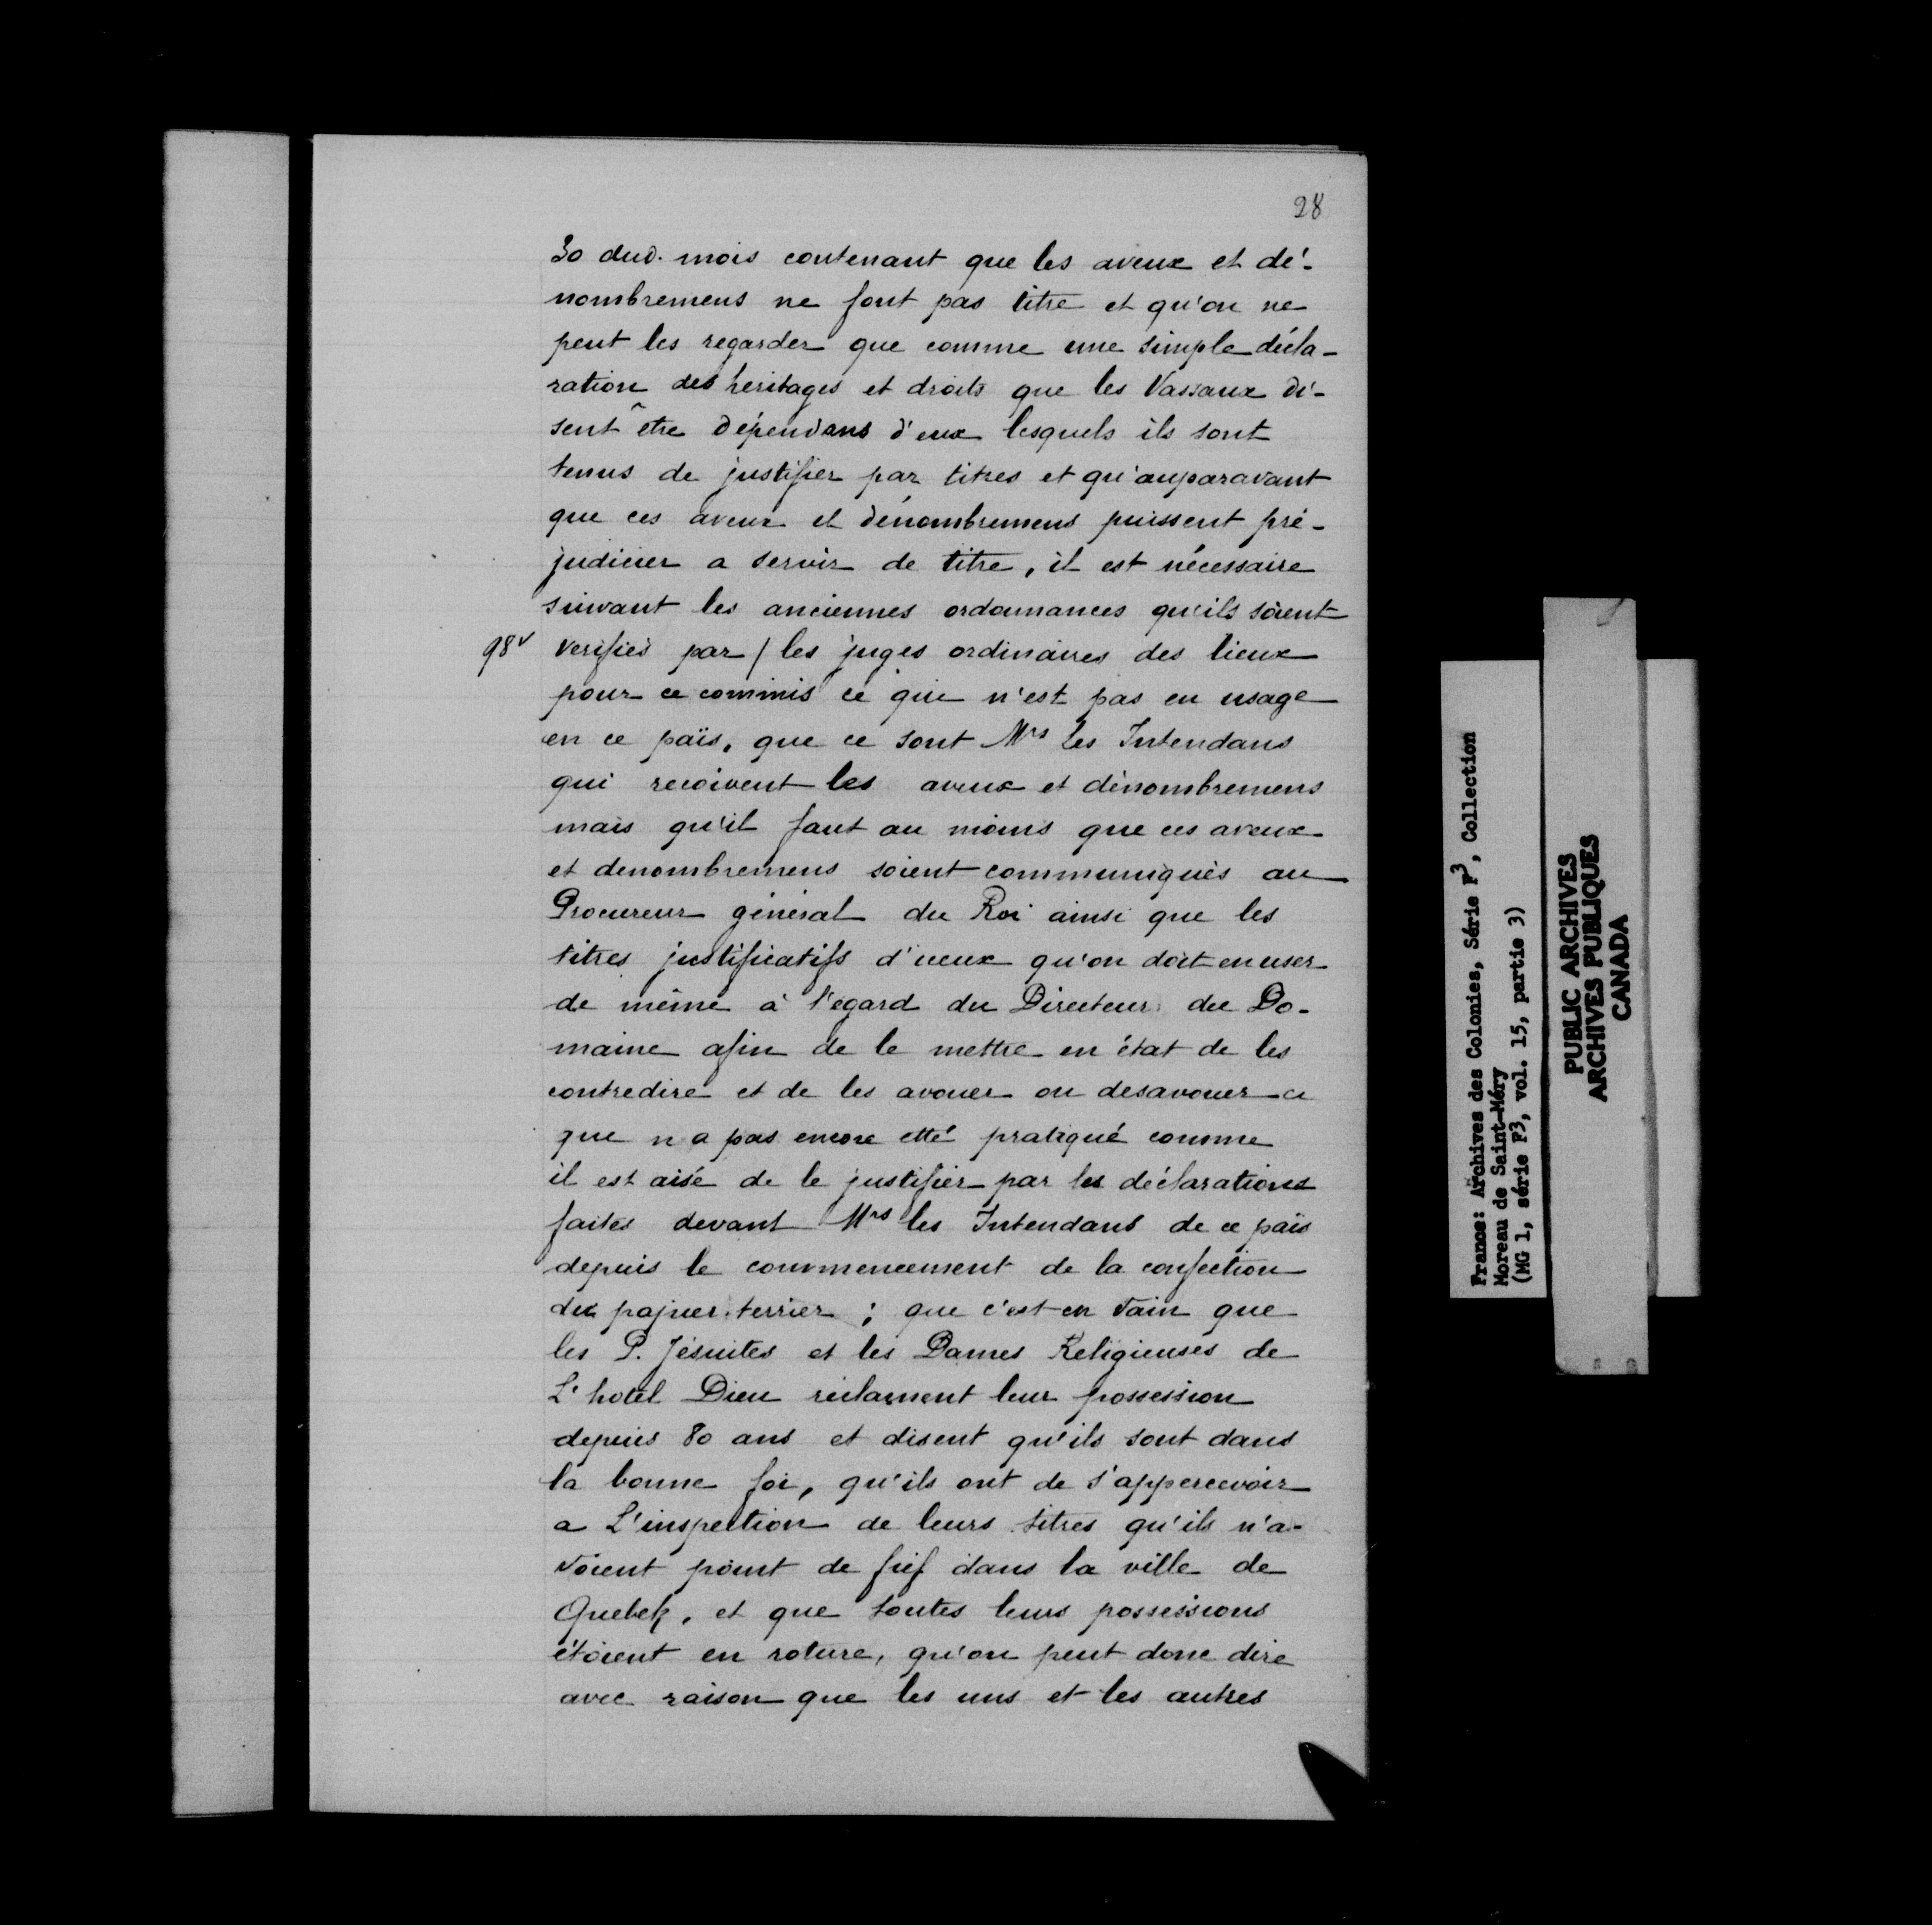 28
30 dud. mois contenant que les aveux et dé-
nombremens ne font pas titre et qu'on ne
peut les regarder que comme une simple décla-
ration des heritages et droits que les Vassaux di-
sent être dépendans d'eux lesquels ils sont
tenus de justifier par titres et qu'auparavant
que ces aveux et dénombremens puissent pré-
judicier a servir de titre, il est nécessaire
suivant les anciennes ordonnances qu'ils soient
98v verifiés par / les juges ordinaires des lieux
pour ce commis ce qui n'est pas en usage
en ce païs, que ce sont Mrs les Intendans
qui recoivent les aveux et dénombremens
mais qu'il faut au moins que ces aveux
et denombremens soient communiqués au
Procureur général du Roi ainsi que les
titres justificatifs d'iceux qu'on doit en user
de même à l'egard du Directeur du Do-
maine afin de le mettre en état de les
contredire et de les avouer ou desavouer ce
que n a pas encore etté pratiqué comme
il est aisé de le justifier par les déclarations
faites devant Mrs les Intendans de ce païs
depuis le commencement de la confection
du papier terrier ; que c'est en vain que
les P. Jésuites et les Dames Religieuses de
L'hotel Dieu réclament leur possession
depuis 80 ans et disent qu'ils sont dans
la bonne foi, qu'ils ont de s'appercevoir
a L'inspection de leurs titres qu'ils n'a-
voient point de fief dans la ville de
Quebek, et que toutes leurs possessions
étoient en roture, qu'on peut donc dire
avec raison que les uns et les autres
France: Archives des Colonies, Série F3, Collection
Moreau de Saint-Méry
(MG 1, série F3, vol. 15, partie 3)
PUBLIC ARCHIVES
ARCHIVES PUBLIQUES
CANADA